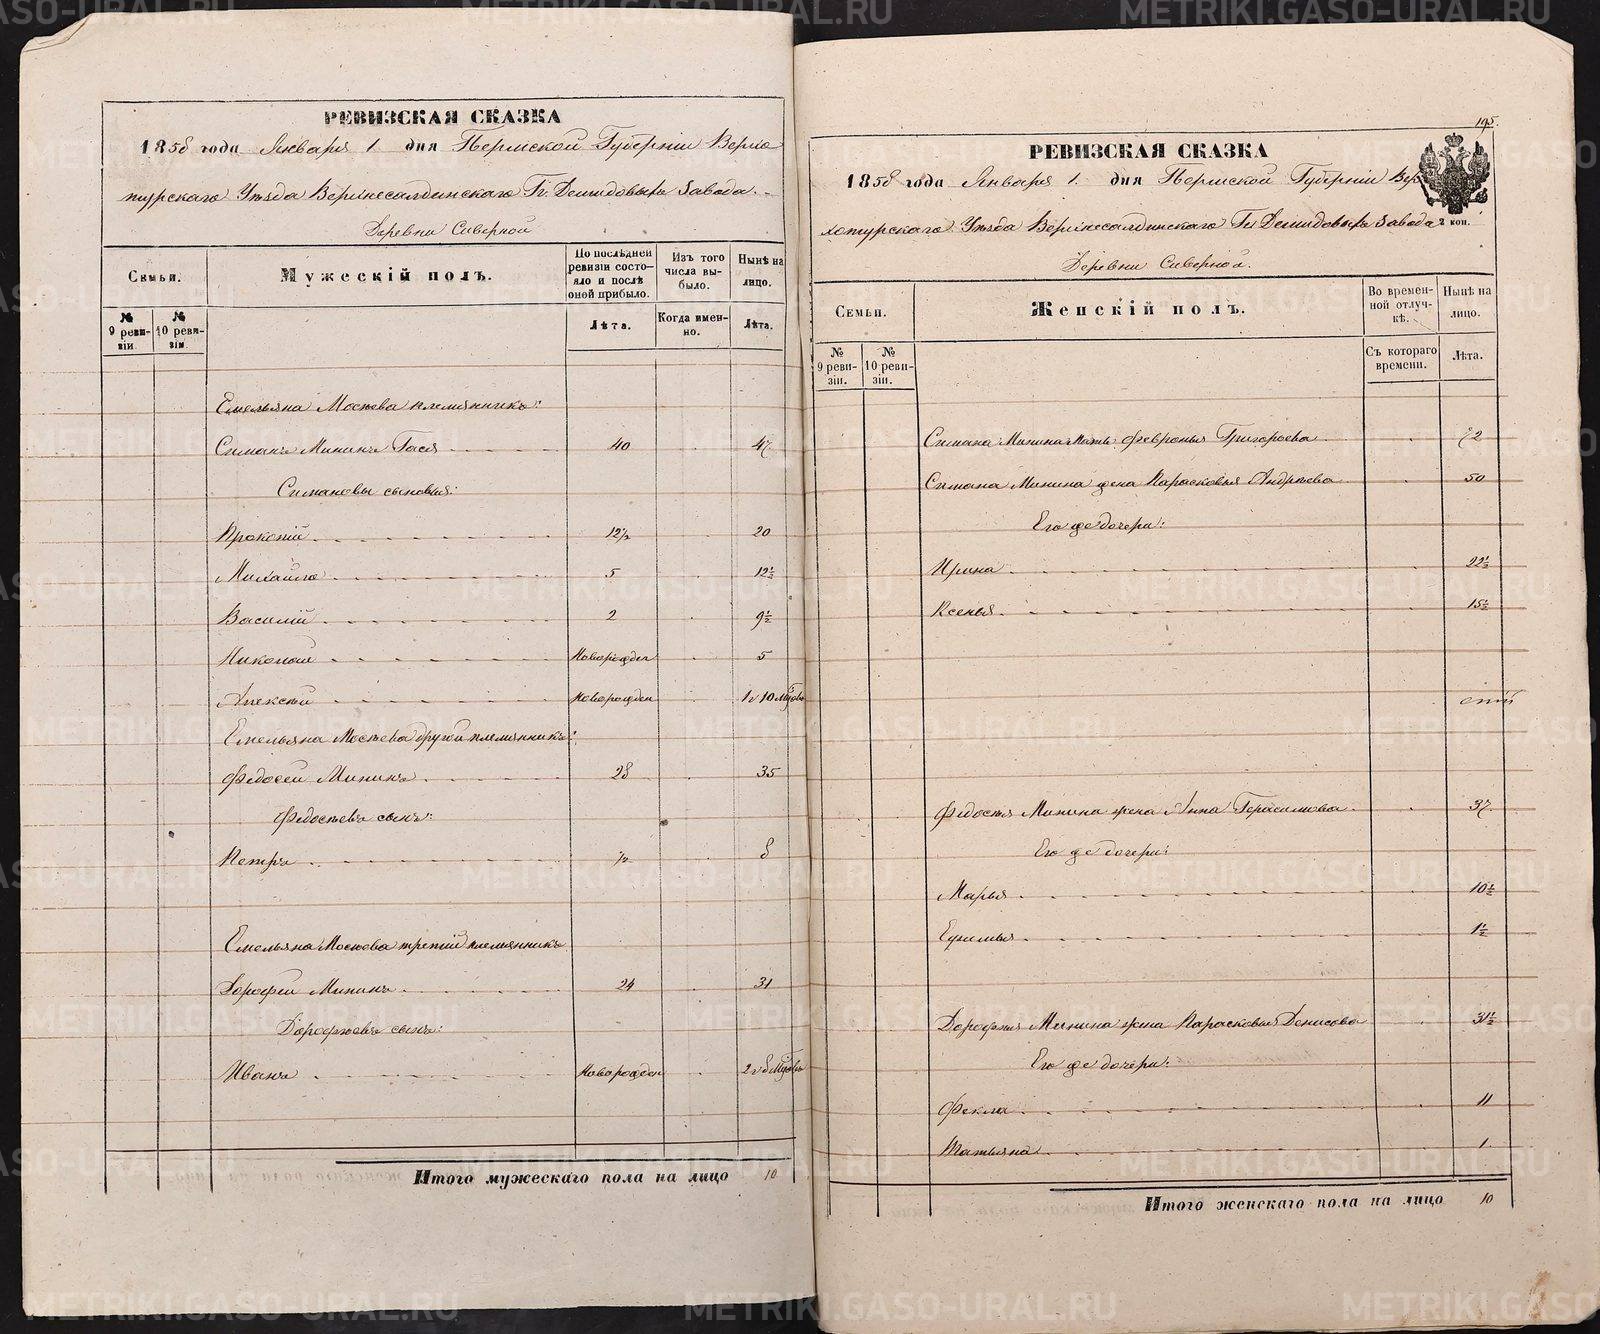 РЕВИЗСКАЯ СКАЗКА
1858 года Января 1. дня Пермской Губерніи Верхо
турскаго Уѣзда Верхнесалдинскаго Гг. Демидовыхъ Завода
Деревни Сѣверной
Семьи.
Мужескій полъ.
По послѣдней ревизіи состояло и послѣ оной прибыло.
Изъ того числа выбыло.
Нынѣ на лицо.
№ 9 ревизіи.
№ 10 ревизіи
Лѣта.
Когда именно.
Лѣта.
Емельяна Мосѣева племянникъ:
Симанъ Мининъ 40 47
Симановы сыновья:
Прокопій 12½ 20
Михайло 5 12½
Василій 2 9½
Николай Новорожден 5
Алексѣй Новорожден 1 г 10 Мѣсов
Емельяна Мосѣева другой племянникъ:
Федосей Мининъ 28 35
Федосѣевъ сынъ:
Петръ ½ 8
Емельяна Мосѣева третій племянникъ
Дорофей Мининъ 24 31
Дорофѣевъ сынъ:
Иванъ Новорожден 2 г 8 Мѣсов
Итого мужескаго пола на лицо 10
195.
РЕВИЗСКАЯ СКАЗКА
1858 года Января 1. дня Пермской Губерніи Вер
хотурскаго Уѣзда Верхнесалдинскаго Гг Демидовыхъ Завода
2 коп.
Деревни Сѣверной.
Семьи.
Женскій полъ.
Во временной отлучкѣ.
Нынѣ на лицо.
№ 9 ревизіи.
№ 10 ревизіи.
Съ котораго времени.
Лѣта.
Симана Минина Мать Февронья Григорьева 72
Симана Минина жена Парасковья Андрѣева 50
Его же дочери:
Ирина 22½
Ксенья 15½
Федосѣя Минина жена Анна Герасимова 37
Его же дочери:
Марья 10½
Ефимья 1½
Дорофея Минина жена Парасковья Денисова 31½
Его же дочери:
Фекла 11
Татьяна 1
Итого женскаго пола на лицо 10
METRIKI.GASO-URAL.RU